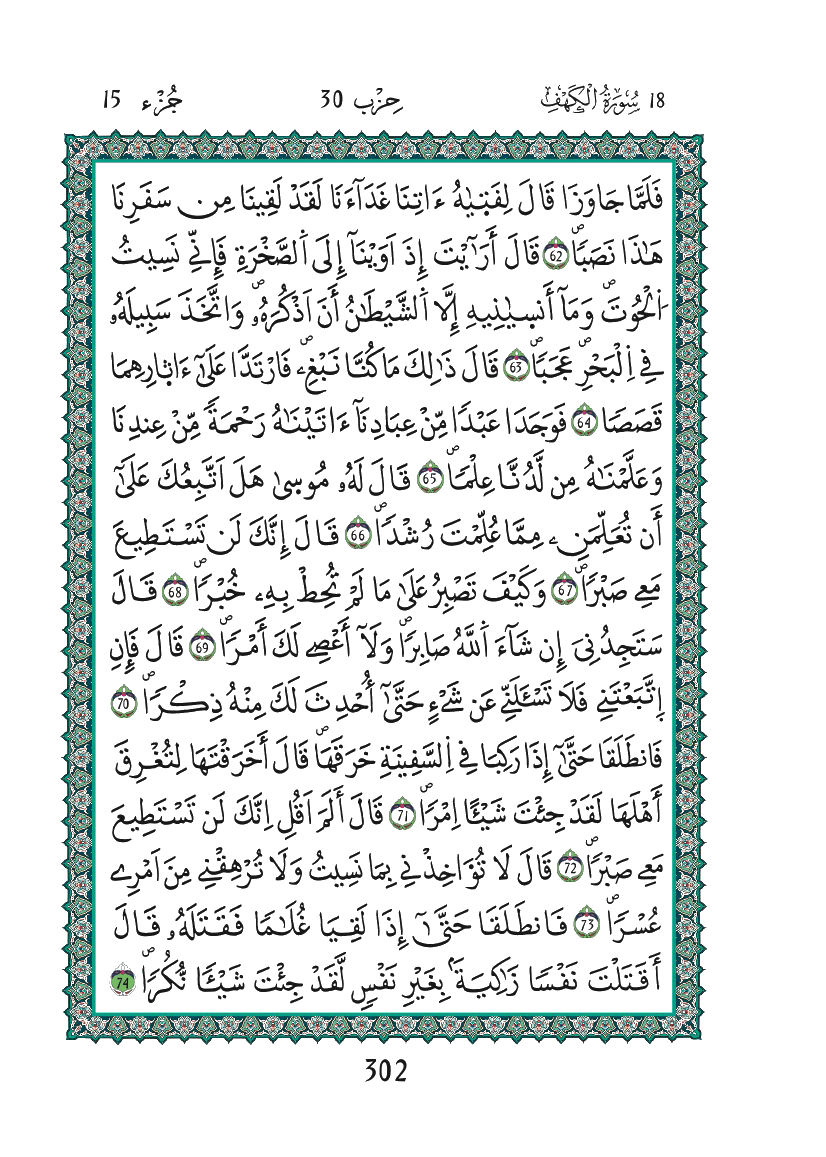 18 سُورَةُ الْكَهْفِ حِزْب 30 جُزْء 15
فَلَمَّا جَاوَزَا قَالَ لِفَتِيٰهُ ءَاتِنَا غَدَآءَنَا لَقَدْ لَقِينَا مِن سَفَرِنَا
هَٰذَا نَصَبٗاۖ 62 قَالَ أَرَٰٓيْتَ إِذَ اَوَيْنَآ إِلَى اَ۬لصَّخْرَةِ فَإِنِّے نَسِيتُ
اُ۬لْحُوتَۖ وَمَآ أَنس۪يٰنِيهِ إِلَّا اَ۬لشَّيْطَٰنُ أَنَ اَذْكُرَهُۥۖ وَاتَّخَذَ سَبِيلَهُۥ
فِے اِ۬لْبَحْرِۖ عَجَبٗاۖ 63 قَالَ ذَٰلِكَ مَا كُنَّا نَبْغِۦۖ فَارْتَدَّا عَلَىٰٓ ءَاث۪ارِهِمَا
قَصَصٗا 64 فَوَجَدَا عَبْدٗا مِّنْ عِبَادِنَآ ءَاتَيْنَٰهُ رَحْمَةٗ مِّنْ عِندِنَا
وَعَلَّمْنَٰهُ مِن لَّدُنَّا عِلْمٗاۖ 65 قَالَ لَهُۥ مُوس۪يٰ هَلَ اَتَّبِعُكَ عَلَىٰٓ
أَن تُعَلِّمَنِۦ مِمَّا عُلِّمْتَ رُشْدٗاۖ 66 قَالَ إِنَّكَ لَن تَسْتَطِيعَ
مَعِے صَبْرٗاۖ 67 وَكَيْفَ تَصْبِرُ عَلَىٰ مَا لَمْ تُحِطْ بِهِۦ خُبْرٗاۖ 68 قَالَ
سَتَجِدُنِيَ إِن شَآءَ اَ۬للَّهُ صَابِرٗا وَلَآ أَعْصِے لَكَ أَمْرٗاۖ 69 قَالَ فَإِنِ
اِ۪تَّبَعْتَنِے فَلَا تَسْـَٔلَنِّے عَن شَےْءٍ حَتَّىٰٓ أُحْدِثَ لَكَ مِنْهُ ذِكْرٗاۖ 70
فَانطَلَقَا حَتَّىٰٓ إِذَا رَكِبَا فِے اِ۬لسَّفِينَةِ خَرَقَهَاۖ قَالَ أَخَرَقْتَهَا لِتُغْرِقَ
أَهْلَهَا لَقَدْ جِئْتَ شَيْـًٔا اِمْرٗاۖ 71 قَالَ أَلَمَ اَقُلِ اِنَّكَ لَن تَسْتَطِيعَ
مَعِے صَبْرٗاۖ 72 قَالَ لَا تُؤَاخِذْنِے بِمَا نَسِيتُ وَلَا تُرْهِقْنِے مِنَ اَمْرِے
عُسْرٗاۖ 73 فَانطَلَقَا حَتَّىٰٓ إِذَا لَقِيَا غُلَٰمٗا فَقَتَلَهُۥ قَالَ
أَقَتَلْتَ نَفْسٗا زَٰكِيَةَۢ بِغَيْرِ نَفْسٖ لَّقَدْ جِئْتَ شَيْـٔٗا نُّكُرٗاۖ 74
302